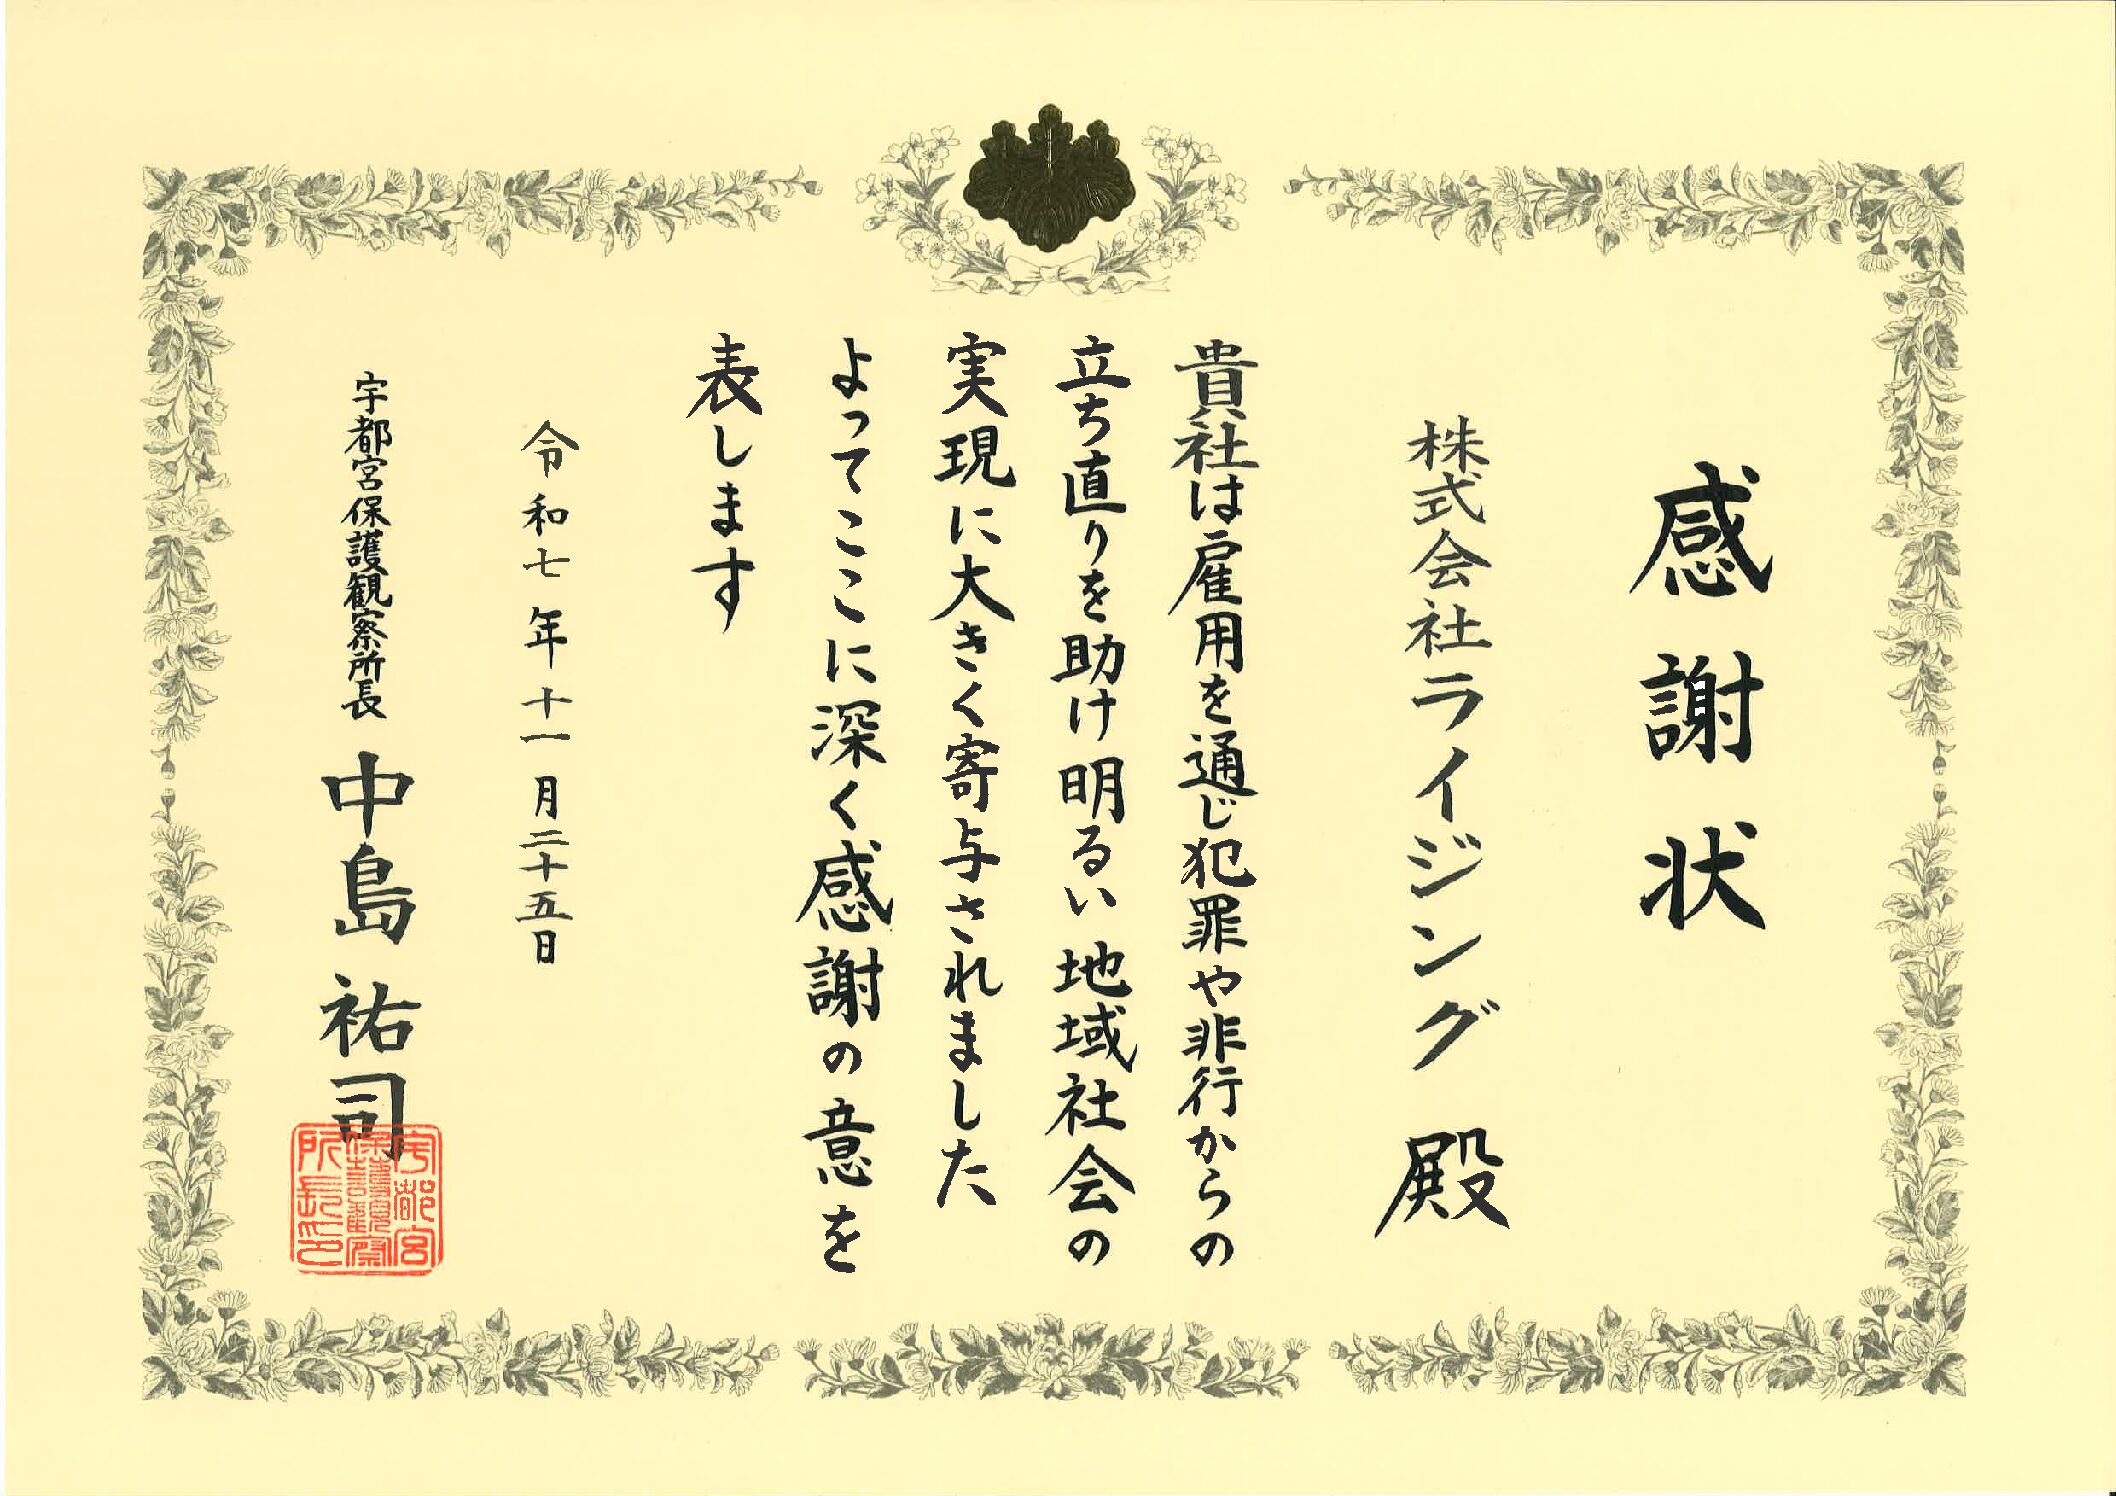 感謝状
株式会社ライジング 殿
貴社は雇用を通じ犯罪や非行からの
立ち直りを助け明るい地域社会の
実現に大きく寄与されました
よってここに深く感謝の意を
表します
令和七年十一月二十五日
宇都宮保護観察所長 中島祐司
宇都宮
保護観察
所長印